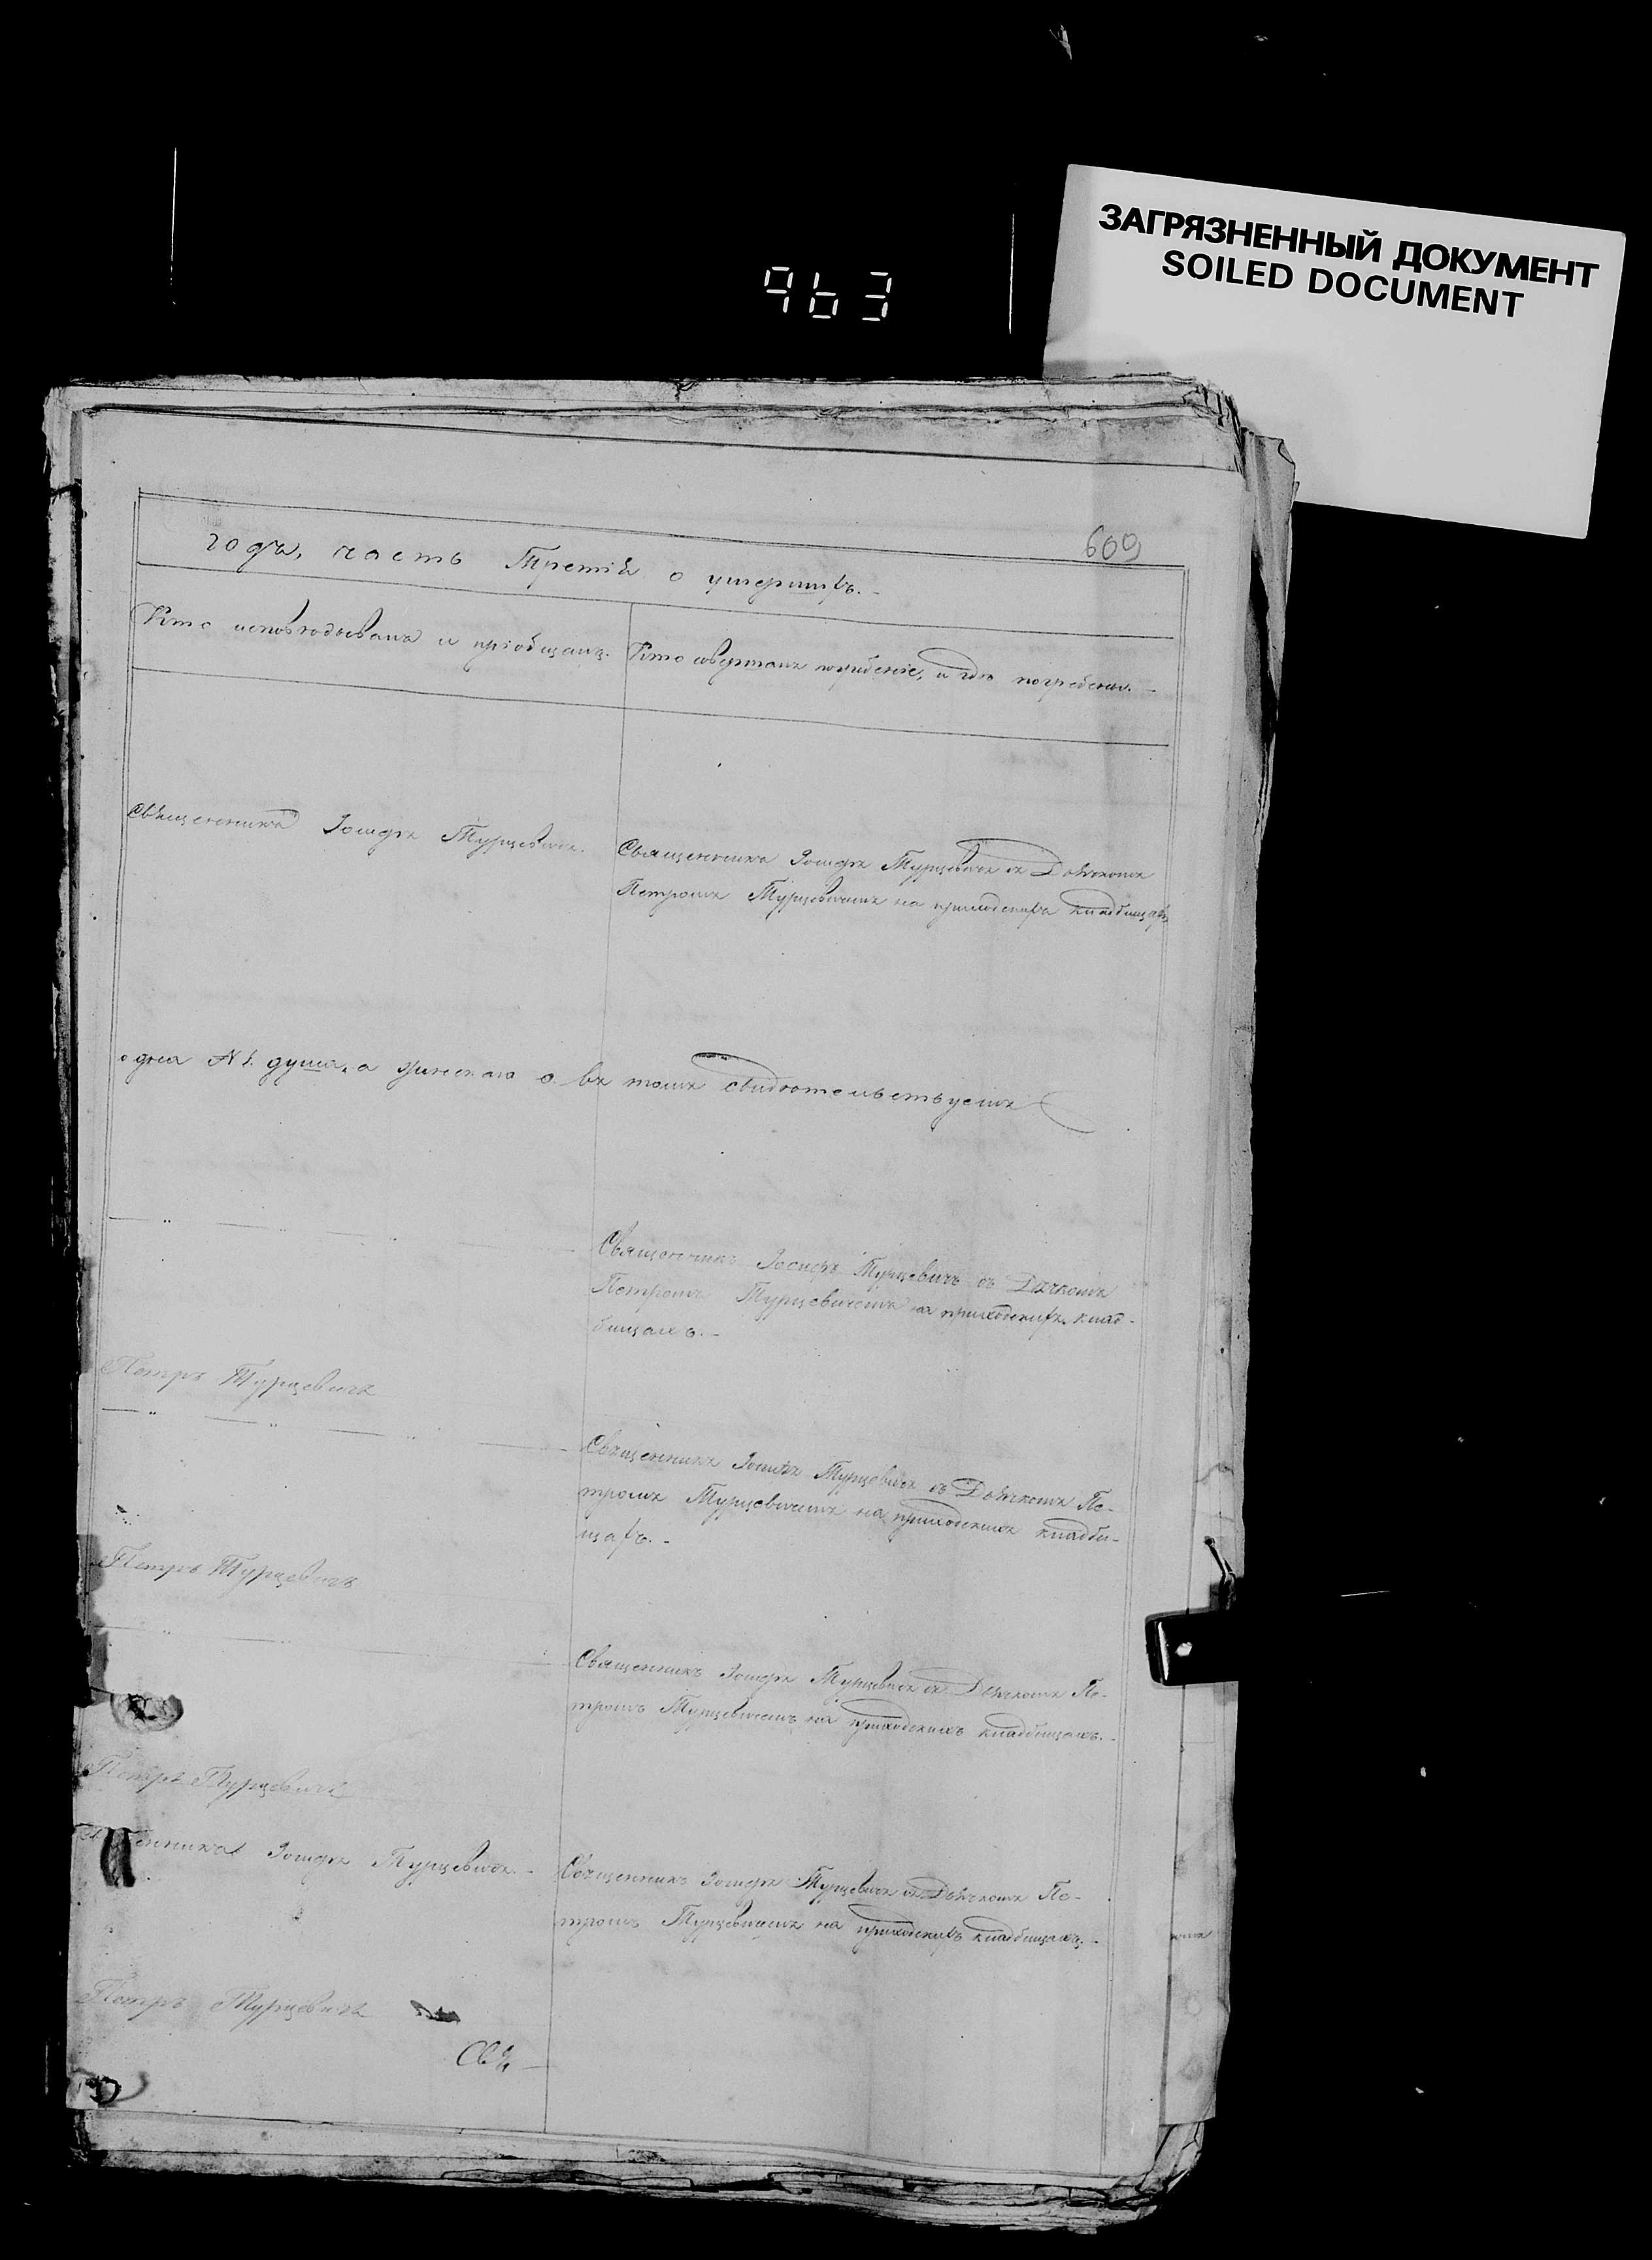 ЗАГРЯЗНЕННЫЙ ДОКУМЕНТ
SOILED DOCUMENT
963
609
годъ, часть Третія о умершихъ.
Кто исповѣдывалъ и пріобщалъ.
Кто совершалъ погребеніе, и гдѣ погребены.
Священникъ Іосифъ Турцевичъ.
Священникъ Іосифъ Турцевичъ съ Дьячкомъ
Петромъ Турцевичемъ на приходскихъ кладбищахъ
одна №1. душа, а женскаго 0. въ томъ свидѣтельствуемъ
Священникъ Іосифъ Турцевичъ съ Дьячкомъ
Петромъ Турцевичемъ на приходскихъ клад-
бищахъ.
Петръ Турцевичъ
Священникъ Іосифъ Турцевичъ съ Дьячкомъ Пе-
тромъ Турцевичемъ на приходскихъ кладби-
щахъ.
Петръ Турцевичъ
Священникъ Іосифъ Турцевичъ съ Дьячкомъ Пе-
тромъ Турцевичемъ на приходскихъ кладбищахъ.
Петръ Турцевичъ
Іосифъ Турцевичъ.
Священникъ Іосифъ Турцевичъ съ Дьячкомъ Пе-
тромъ Турцевичемъ на приходскихъ кладбищахъ.
Петръ Турцевичъ
Свя